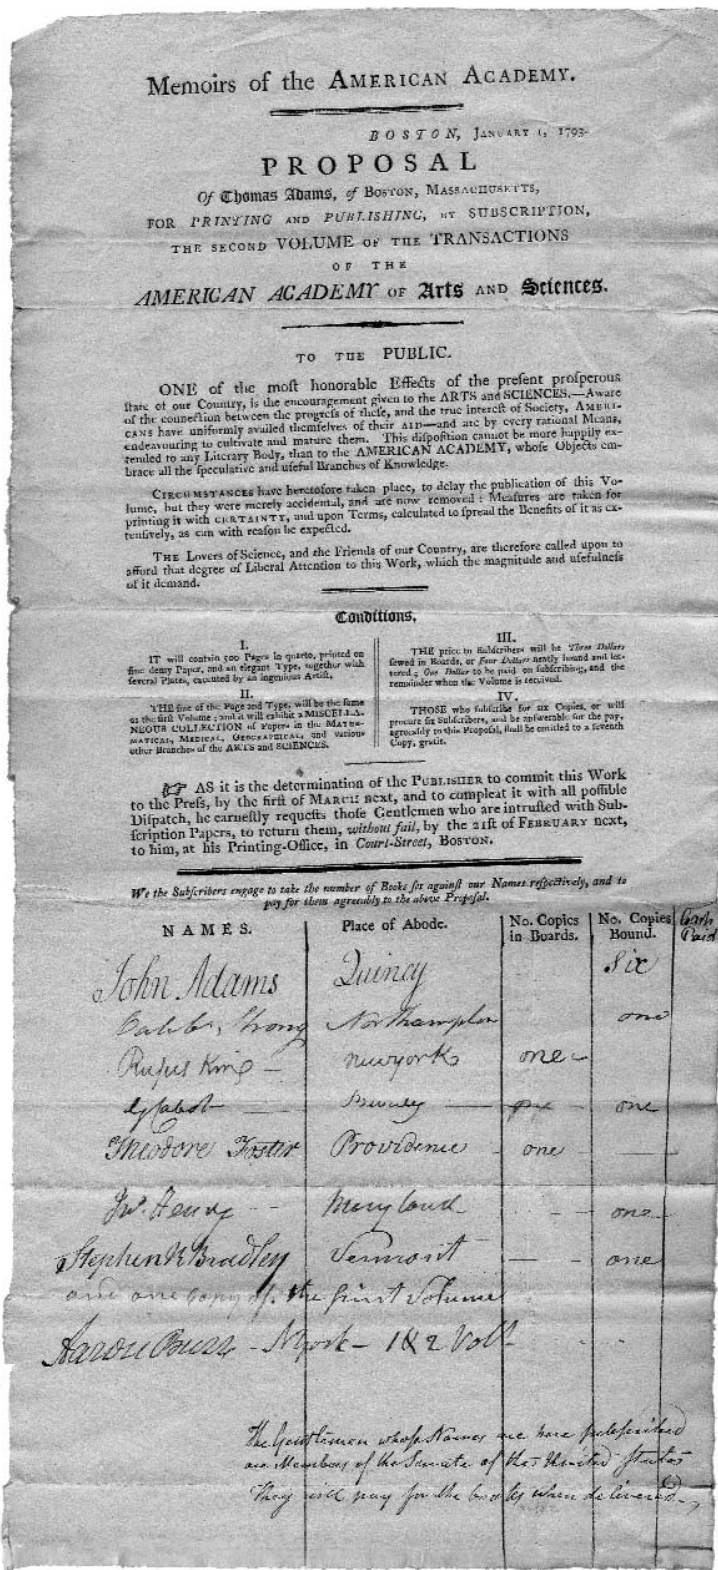 Memoirs of the AMERICAN ACADEMY.
BOSTON, JANUARY 1, 1793.
PROPOSAL
Of Thomas Adams, of BOSTON, MASSACHUSETTS,
FOR PRINTING AND PUBLISHING, BY SUBSCRIPTION,
THE SECOND VOLUME OF THE TRANSACTIONS
OF THE
AMERICAN ACADEMY OF Arts AND Sciences.
TO THE PUBLIC.
ONE of the moſt honorable Effects of the preſent proſperous
ſtate of our Country, is the encouragement given to the ARTS and SCIENCES.—Aware
of the connection between the progreſs of theſe, and the true intereſt of Society, AMERI-
CANS have uniformly availed themſelves of their AID—and are by every rational Means,
endeavouring to cultivate and mature them. This diſpoſition cannot be more happily ex-
tended to any Literary Body, than to the AMERICAN ACADEMY, whoſe Objects em-
brace all the ſpeculative and uſeful Branches of Knowledge.
CIRCUMSTANCES have heretofore taken place, to delay the publication of this Vo-
lume, but they were merely accidental, and are now removed: Meaſures are taken for
printing it with CERTAINTY, and upon Terms, calculated to ſpread the Benefits of it as ex-
tenſively, as can with reaſon be expected.
THE Lovers of Science, and the Friends of our Country, are therefore called upon to
afford that degree of Liberal Attention to this Work, which the magnitude and uſefulneſs
of it demand.
Conditions.
I.
IT will contain 500 Pages in quarto, printed on
fine demy Paper, and an elegant Type, together with
ſeveral Plates, executed by an ingenious Artiſt.
II.
THE ſize of the Page and Type, will be the ſame
as the firſt Volume; and it will exhibit a MISCELLA-
NEOUS COLLECTION of Papers in the MATHE-
MATICAL, MEDICAL, GEOGRAPHICAL, and various
other Branches of the ARTS and SCIENCES.
III.
THE price to Subſcribers will be Three Dollars
ſewed in Boards, or Four Dollars neatly bound and let-
tered; One Dollar to be paid on ſubſcribing, and the
remainder when the Volume is received.
IV.
THOSE who ſubſcribe for ſix Copies, or will
procure ſix Subſcribers, and be anſwerable for the pay,
agreeably to this Propoſal, ſhall be entitled to a ſeventh
Copy, gratis.
☞ AS it is the determination of the PUBLISHER to commit this Work
to the Preſs, by the firſt of MARCH next, and to compleat it with all poſſible
Diſpatch, he earneſtly requeſts thoſe Gentlemen who are intruſted with Sub-
ſcription Papers, to return them, without fail, by the 21ſt of FEBRUARY next,
to him, at his Printing-Office, in Court-Street, BOSTON.
We the Subſcribers engage to take the number of Books ſet againſt our Names reſpectively, and to
pay for them agreeably to the above Propoſal.
NAMES. Place of Abode. No. Copies in Boards. No. Copies Bound. Cash Paid
John Adams Quincy Six
Caleb Strong Northampton one
Rufus King — Newyork one —
G Cabot — — — one
Theodore Foster Providence — one — —
Jno. Henry - - Maryland - - one —
Stephen R Bradley Vermont — - one
and one copy of the first Volume
Aaron Burr - N York — 1 & 2 Vol
The Gentlemen whose Names are here subscribed
are Members of the Senate of the United States
They will pay for the books when delivered